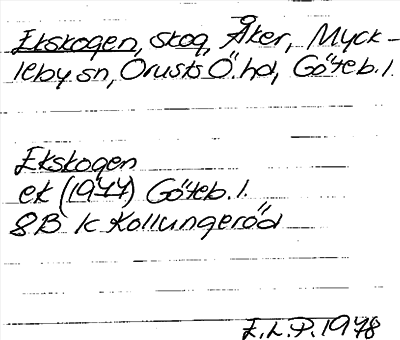 Ekskogen, skog, Åker, Myck-
leby sn, Orusts Ö. hd, Göteb. l.
Ekskogen
ek (1977) Göteb. l.
8B 1c Kollungeröd
E.L.P. 1978